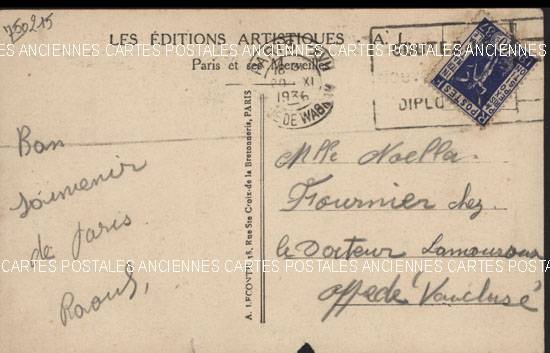 750215
LES ÉDITIONS ARTISTIQUES A. L.
Paris et ses Merveilles
1936
DIPLO
POSTES
CARTES POSTALES ANCIENNES CARTES POSTALES ANCIENNES CARTES POSTALES ANCIENNES
Bon
souvenir
de Paris
Raoul,
A. LECONTE, 38, Rue Ste Croix-de la Bretonnerie, PARIS
Mlle Noella
Fournier chez
le Docteur
Vaucluse
CARTES POSTALES ANCIENNES CARTES POSTALES ANCIENNES CARTES POSTALES ANCIENNES